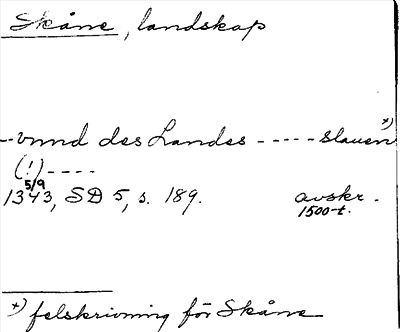 Skåne, landskap
--vnnd des Landes ----- slauen *)
(!)----
5/9
1343, SD 5, s. 189. avskr.
1500-t.
*) felskrivning för Skåne